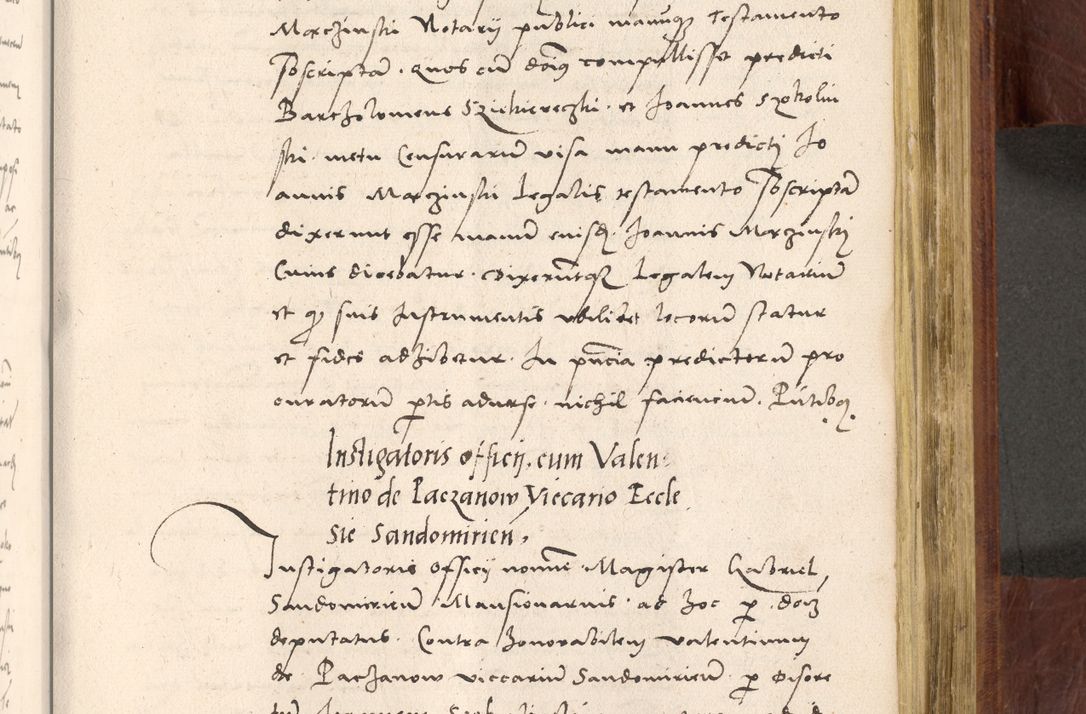 Marczinski Notarij publici manuqz Testamento
Soscriptā. quos cū dōig compulisset predicti
Bartholomeus Sziekiereczki. et Joannes Szokolin
ski. metu Censurarū visa manu predictj Jo
annis Marczinski Legalis testamento Soscriptā
dixerunt esse manū euisdē. Joannis Marczinskj
Cuius dicebatur. dixerūtqz Legalem Notariū
et q suis Instrumentis vbilibet locorū statur
et fides adhibetur. In pn̄cia predictorū pro
curatorū ptis aduerse. nichil facieñ cū. Pn̄tibqz
Instigatoris officij. cum Valen:
tino de Paczanow Viccario Eccle
sie Sandomirien̄,
Instigatoris officij nomē. Magister Gabriel
Sandomirieñ Mansionarius. ad hoc p. dōiz
deputatus. Contra honorabilem valentinum
de Paczanow viccariū Sandomirieñ. p discre